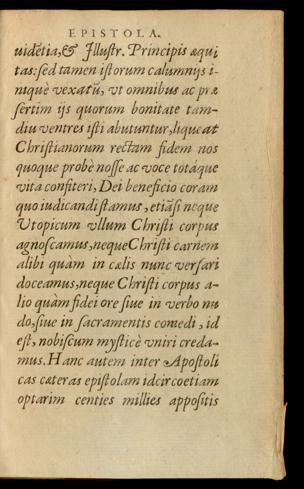 EPISTOLA.
uidẽtia,& Illustr. Principis æqui
tas: sed tamen istorum calumnijs i-
niquè vexatũ, vt omnibus ac præ
sertim ijs quorum bonitate tam-
diu ventres isti abutuntur, liqueat
Christianorum rectam fidem nos
quoque probè nosse ac voce totáque
vita confiteri, Dei beneficio coram
quo iudicandi stamus, etiãsi neque
Vtopicum vllum Christi corpus
agnoscamus, neque Christi carnem
alibi quàm in cælis nunc versari
doceamus, neque Christi corpus a-
lio quàm fidei ore siue in verbo nu
do, siue in sacramentis comedi, id
est, nobiscum mysticè vniri creda-
mus. Hanc autem inter Apostoli
cas cæteras epistolam idcirco etiam
optarim centies millies appositis